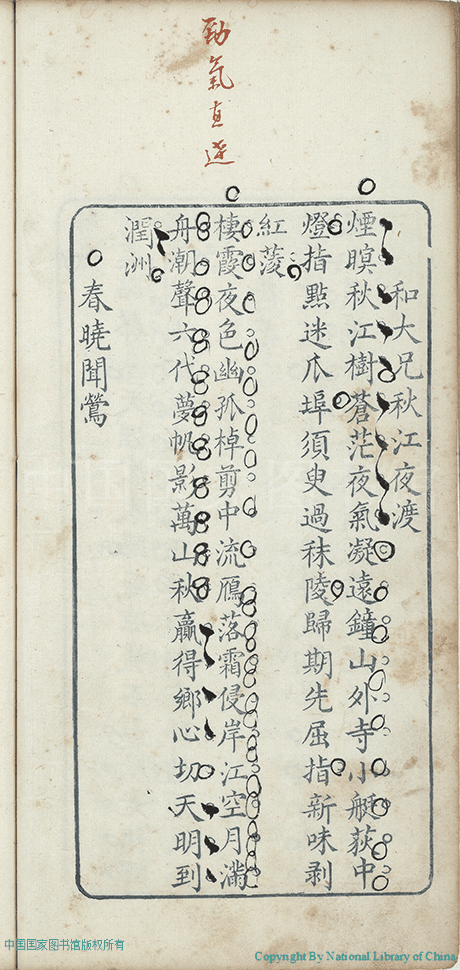 勁氣直達
和大兄秋江夜渡
煙暝秋江樹蒼茫夜氣凝遠鐘山外寺小艇荻中
燈指點迷瓜埠須臾過秣陵歸期先屈指新味剥
紅菱
棲霞夜色幽孤棹剪中流鴈落霜侵岸江空月滿
舟潮聲六代夢帆影萬山秋贏得鄉心切天明到
潤洲
春曉聞鶯
中国国家图书馆版权所有
Copyright By National Library of China